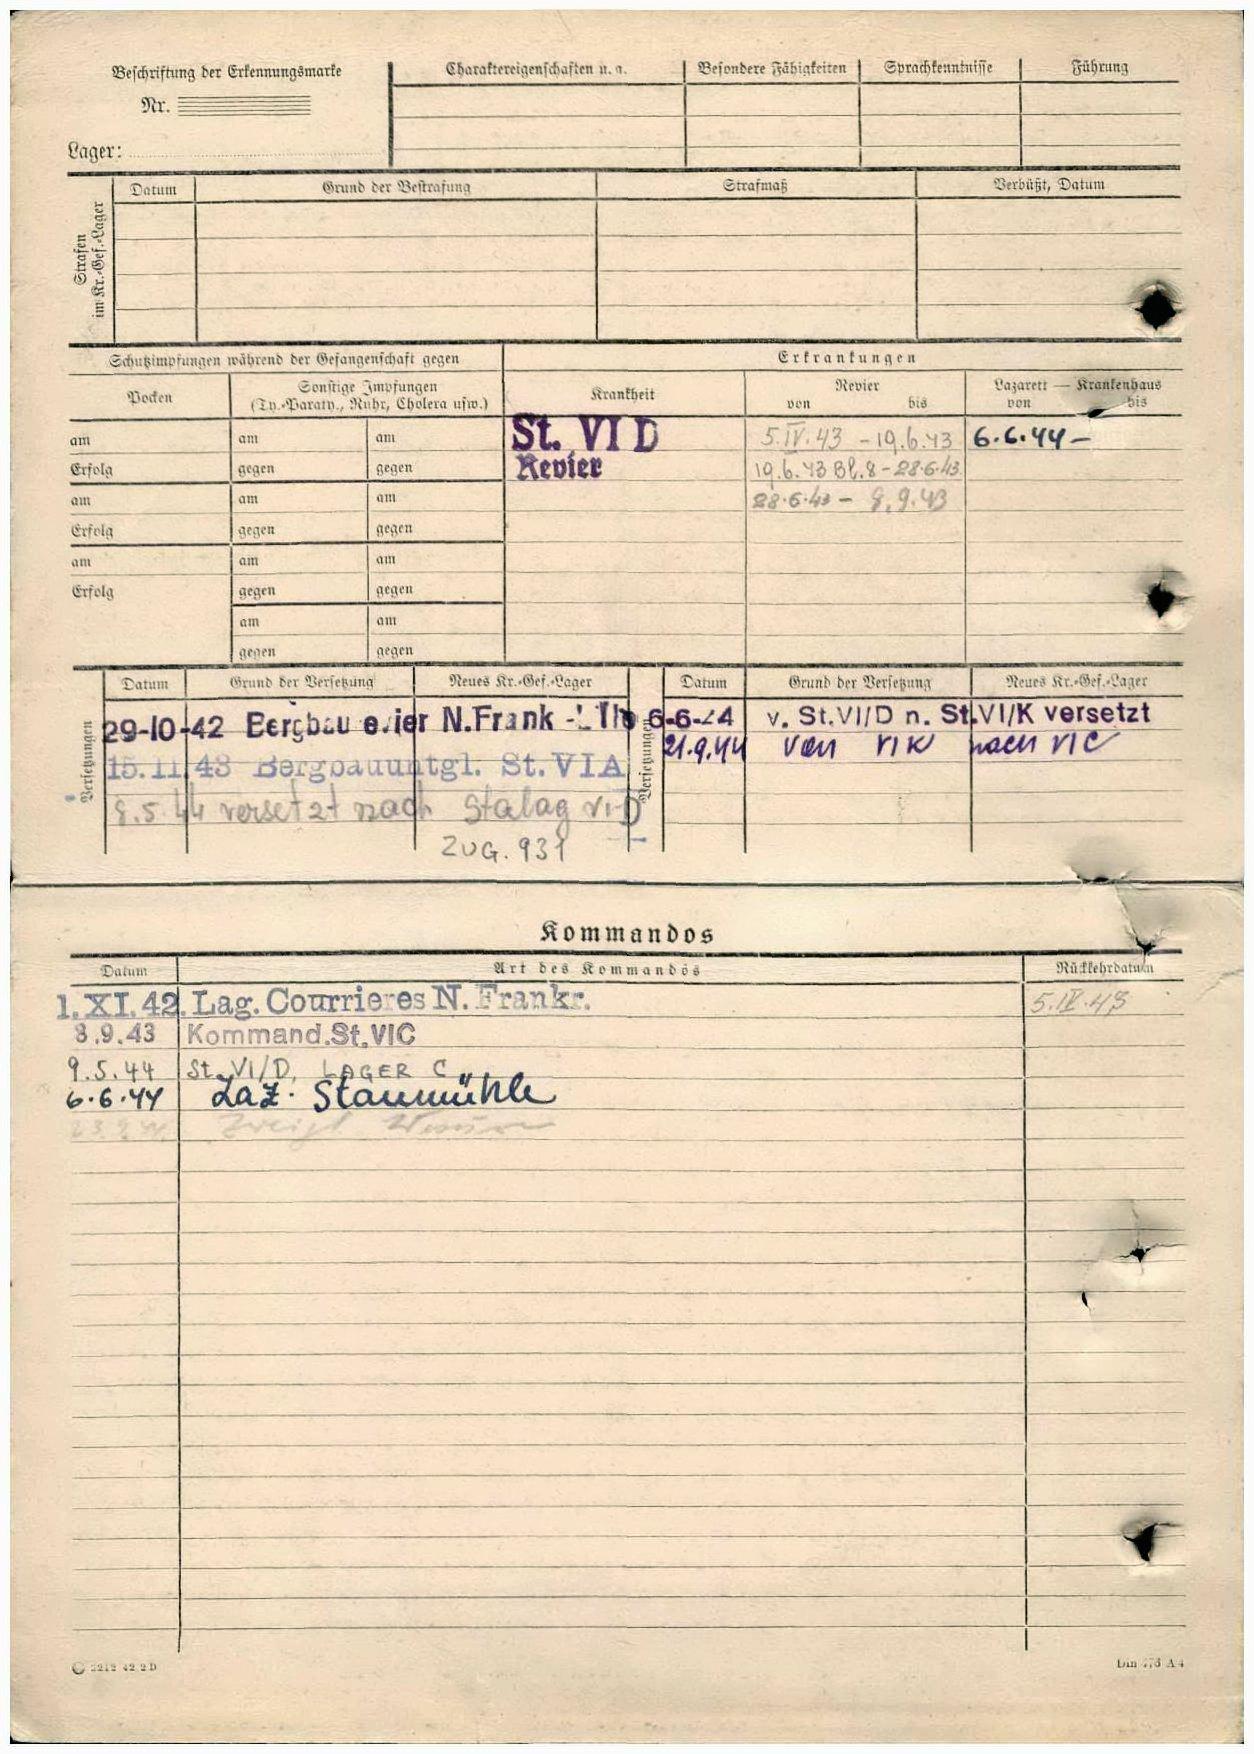 Beschriftung der Erkennungsmarke
Nr.
Lager:
Charaktereigenschaften u. a. Besondere Fähigkeiten Sprachkenntnisse Führung
Strafen im Kr.-Gef.-Lager
Datum Grund der Bestrafung Strafmaß Verbüßt, Datum
Schutzimpfungen während der Gefangenschaft gegen Erkrankungen
Pocken Sonstige Impfungen Krankheit Revier Lazarett — Krankenhaus
(Ty.-Paraty., Ruhr, Cholera usw.) von bis von bis
am am am St. VI D 5.IV.43 - 19.6.43 6.6.44 -
Erfolg gegen gegen Revier 19.6.43 Bl.8 - 28.6.43
am am am 28.6.43 - 8.9.43
Erfolg gegen gegen
am am am
Erfolg gegen gegen
am am
gegen gegen
Versetzungen
Datum Grund der Versetzung Neues Kr.-Gef.-Lager
29-10-42 N.Frank
15.11.43 Bergbauuntgl. St. VIA
8.5.44 versetzt nach Stalag VI-D
ZUG. 931
Versetzungen
Datum Grund der Versetzung Neues Kr.-Gef.-Lager
6-6-44 v. St.VI/D n. St.VI/K versetzt
21.9.44 von VIK nach VIC
Kommandos
Datum Art des Kommandos Rückkehrdatum
1.XI.42. Lag. Courrieres N. Frankr. 5.IV.43
8.9.43 Kommand.St.VIC
9.5.44 St. VI/D, LAGER C
6.6.44 Laz. Staumühle
2212 42 2 D
Din 476 A 4